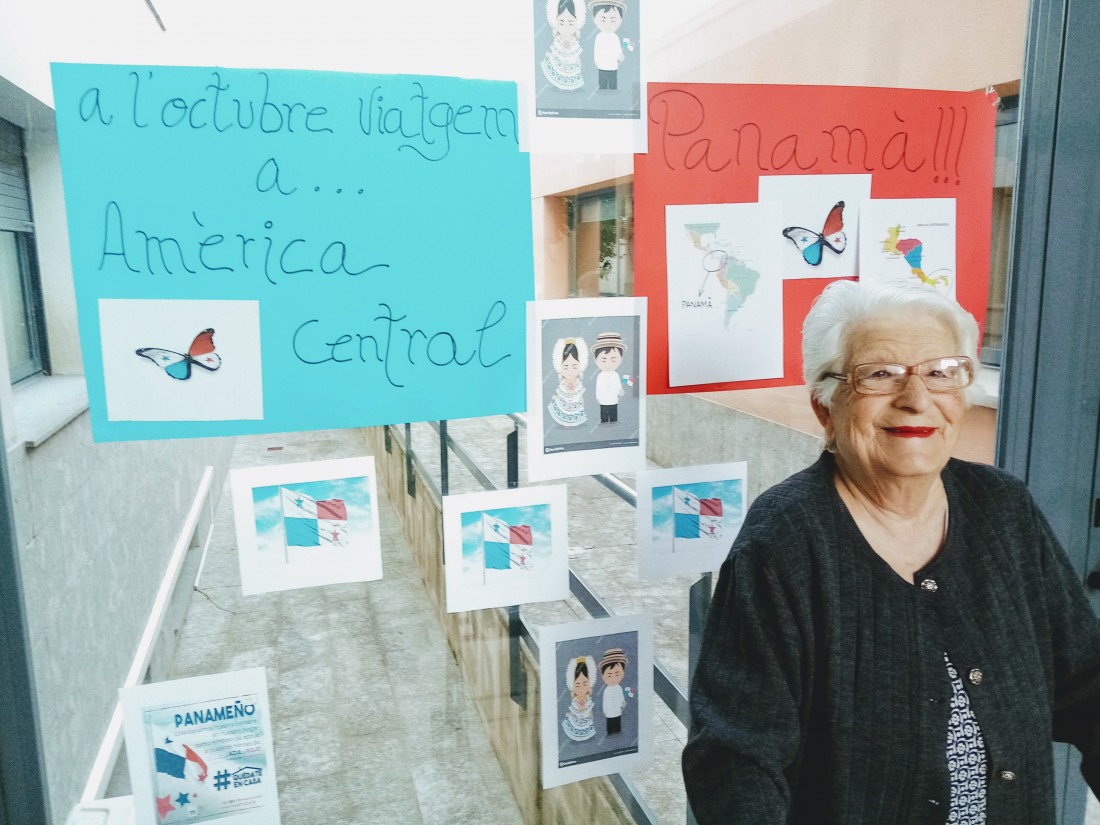 a l'octubre viatgem
a...
Amèrica
Central
Panamà!!!
PANAMÀ
PANAMEÑO
AZUL
ROJO
#QUÉDATE
EN CASA